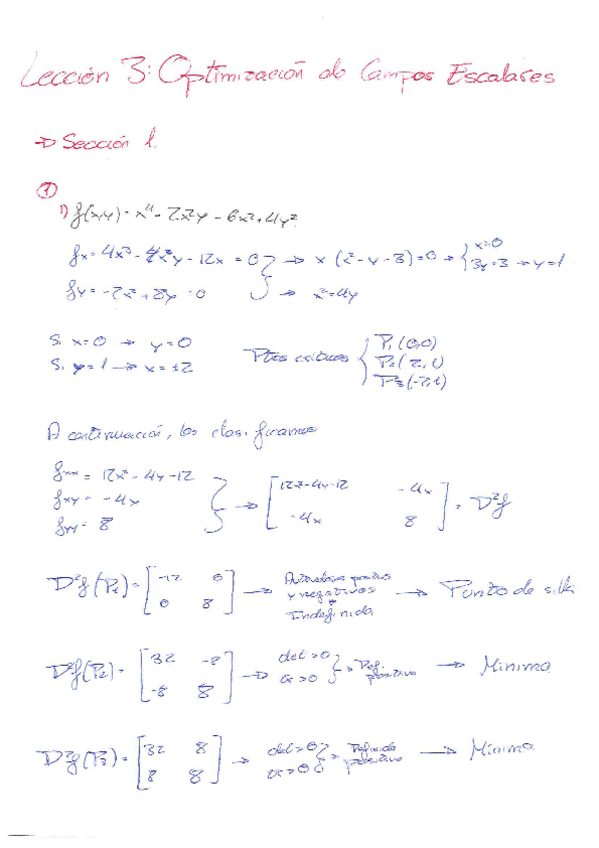 Lección 3: Optimización de Campos Escalares
→ Sección 1.
①
1) f(x,y) = x⁴ - 2x²y - 6x² + 4y²
fx = 4x³ - 4xy - 12x = 0 } → x (x² - y - 3) = 0 → { x=0
3y = 3 → y = 1
fy = -2x² + 8y = 0 } → x² = 4y
Si x=0 → y=0
Si y=1 → x=±2
Ptos críticos { P₁(0,0)
P₂(2,1)
P₃(-2,1)
A continuación, los clasificamos
fxx = 12x² - 4y - 12
fxy = -4x
fyy = 8
} → [ 12x²-4y-12 -4x
-4x 8 ] = D²f
D²f(P₁) = [ -12 0
0 8 ] → Autovalores positivos y negativos
Indefinida → Punto de silla
D²f(P₂) = [ 32 -8
-8 8 ] → det>0
a>0 } → Def. positiva → Mínimo
D²f(P₃) = [ 32 8
8 8 ] → det>0
a>0 } → Definida positiva → Mínimo